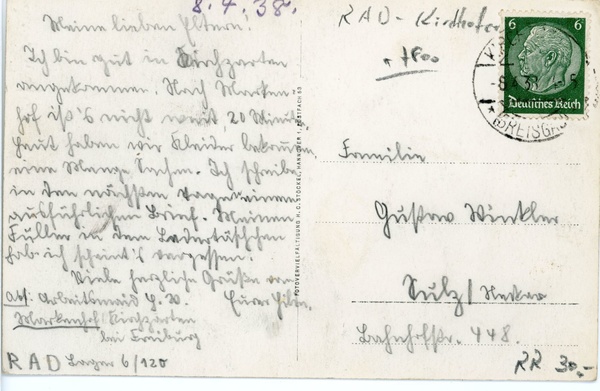 8.4.38.
Meine lieben Eltern!
Ich bin gut in Kirchzarten
angekommen. Nach Marken-
hof ist's nicht weit, 20 Minuten
Heut haben wir Kleider bekommen
eine Menge Sachen. Ich schreibe
in den nächsten Tagen einen
ausführlichen Brief. Meinen
Füller in dem Ledertäschchen
hab ich scheint's vergessen.
Viele herzliche Grüße von
Eurer
Abs: Arbeitsmaid H. W.
Markenhof/Kirchzarten
bei Freiburg
RAD Lager 6/120
FOTOVERVIELFÄLTIGUNG H. C. STÖCKEL, HANNOVER 1, POSTFACH 93
RAD-
6 6
Deutsches Reich
(BREISGAU)
Familie
Gustav Winkler
Sulz/Neckar
Bahnhofstr. 448.
RR 30.-